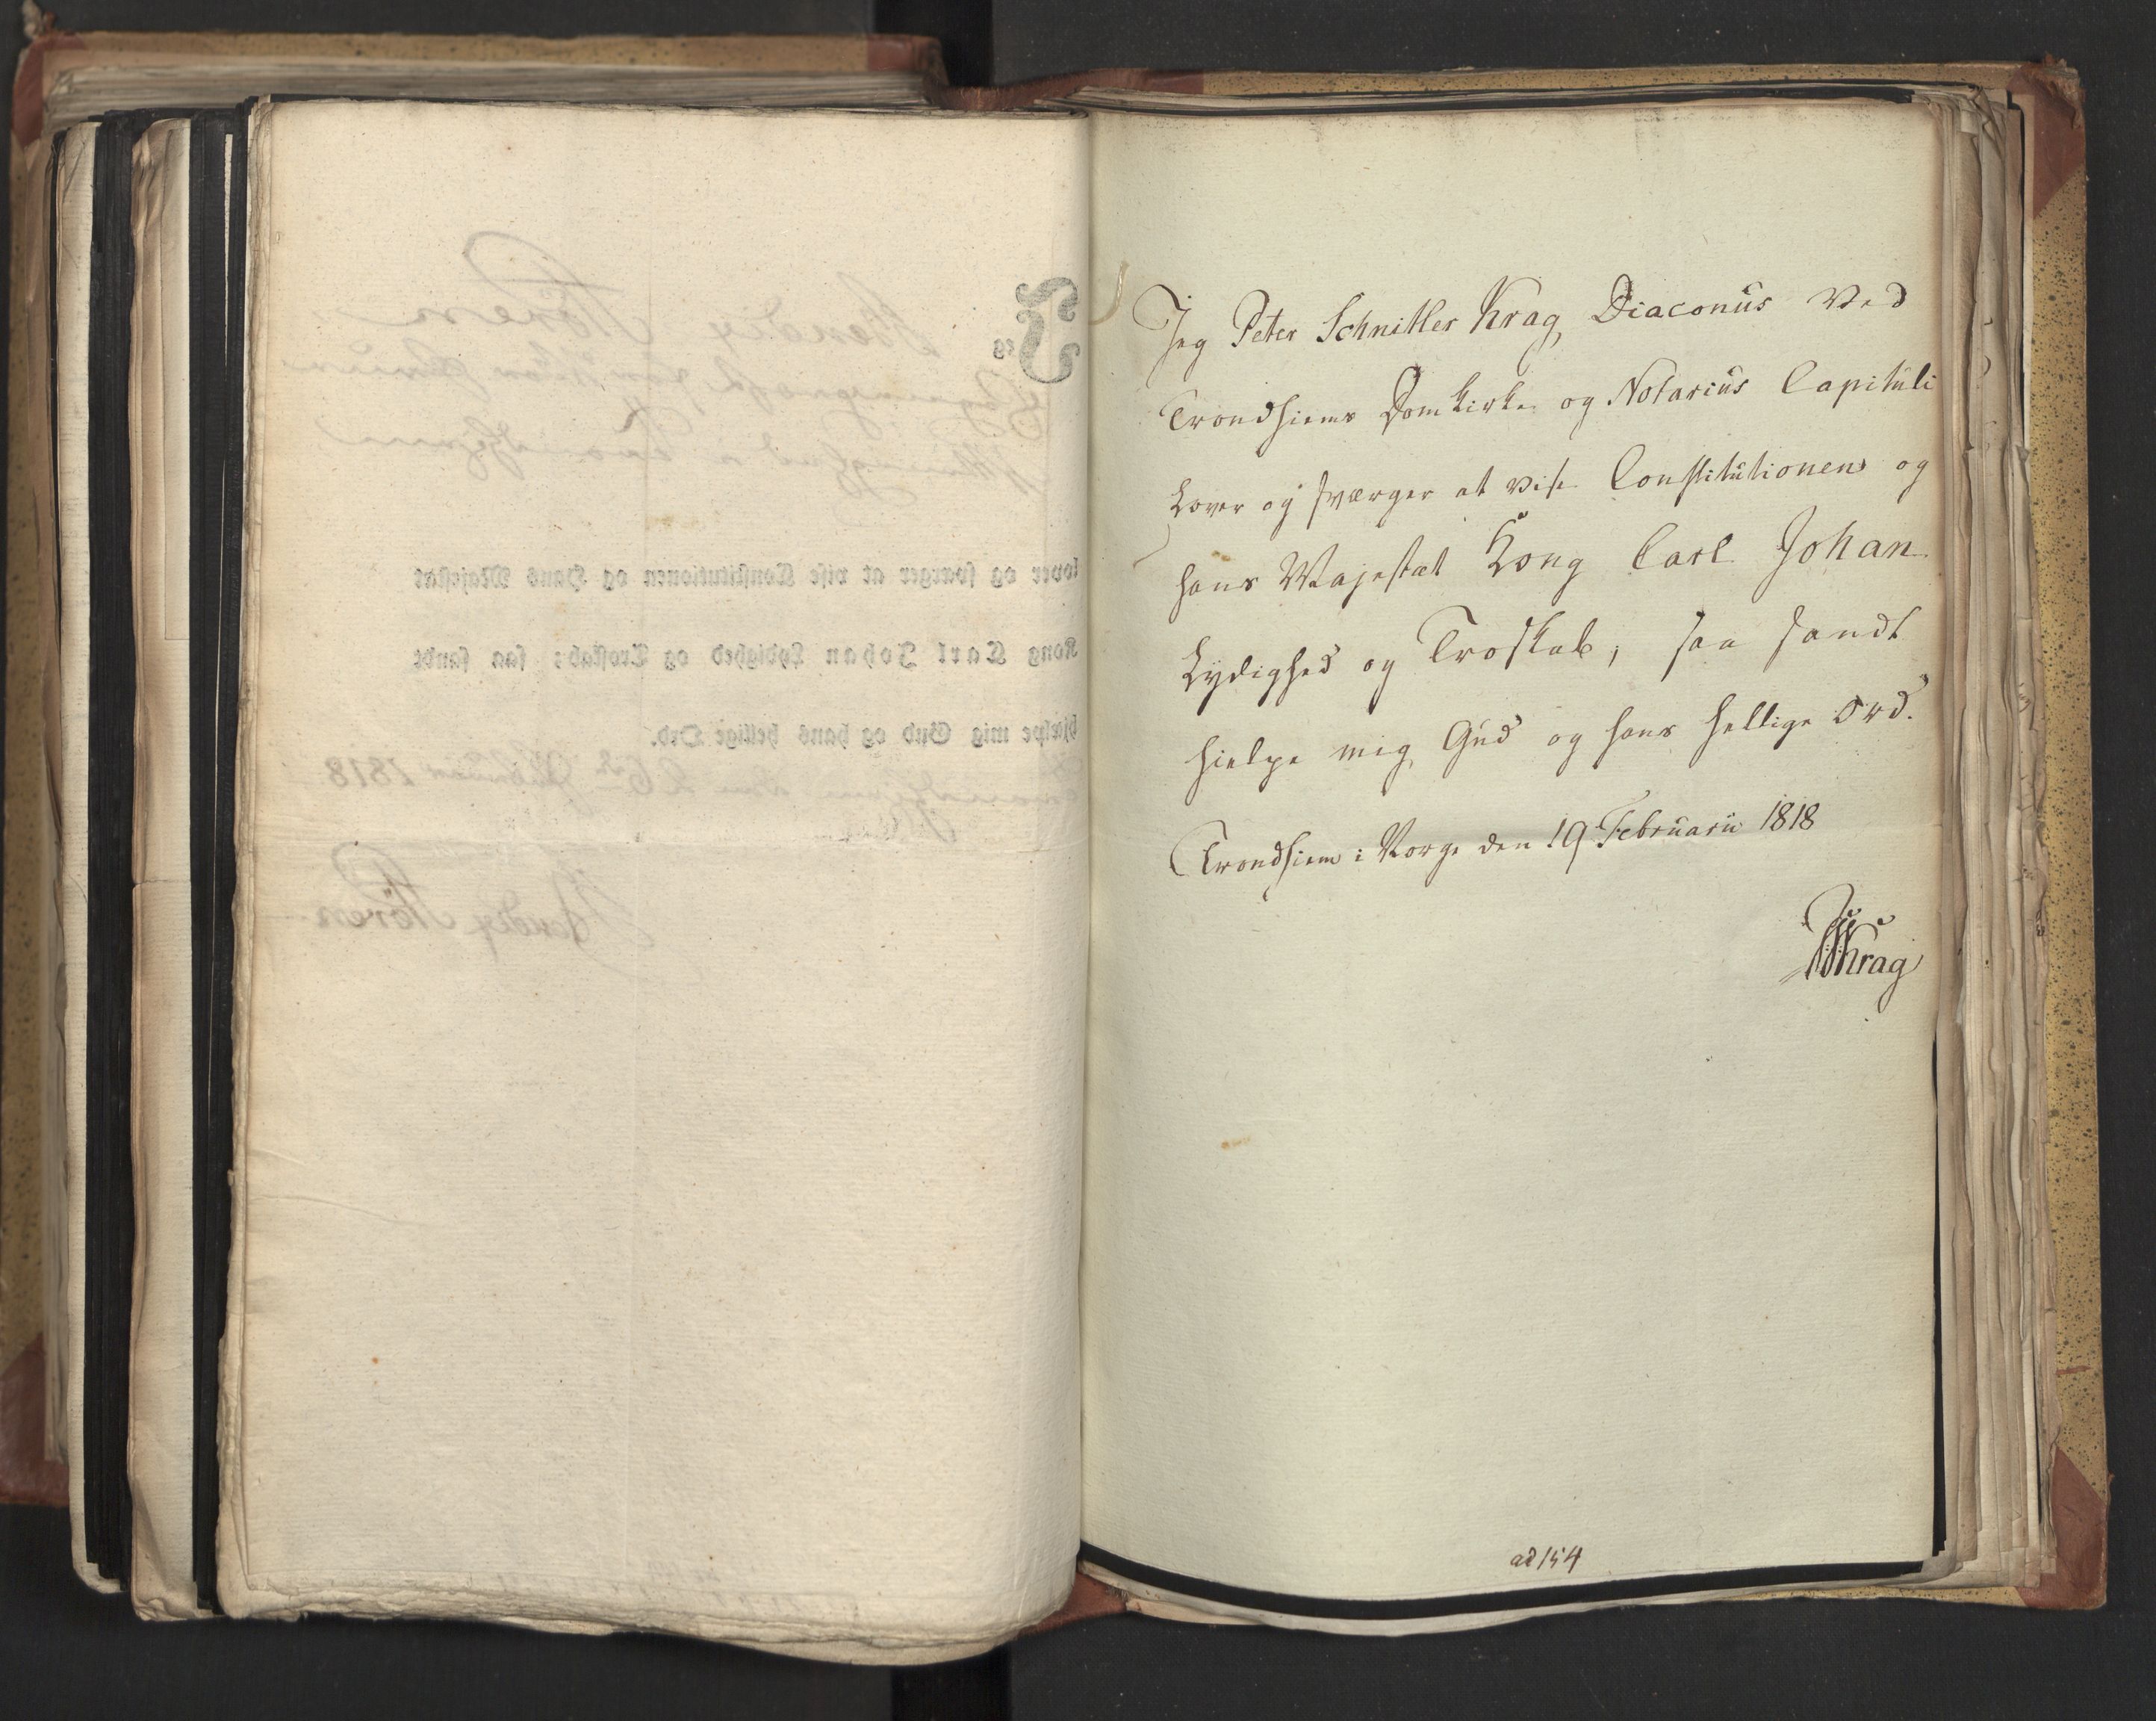 Jeg Peter Schnitler Krag, Diaconus ved
Trondhiems Domkirke og Notarius Capituli
Lover og sværger at vise Constitutionen og
hans Majestæt Kong Carl Johan
Lydighed og Troskab; saa sandt
hielpe mig Gud og hans hellige Ord.
Trondhiem i Norge den 19 Februarii 1818
Krag
ad 154